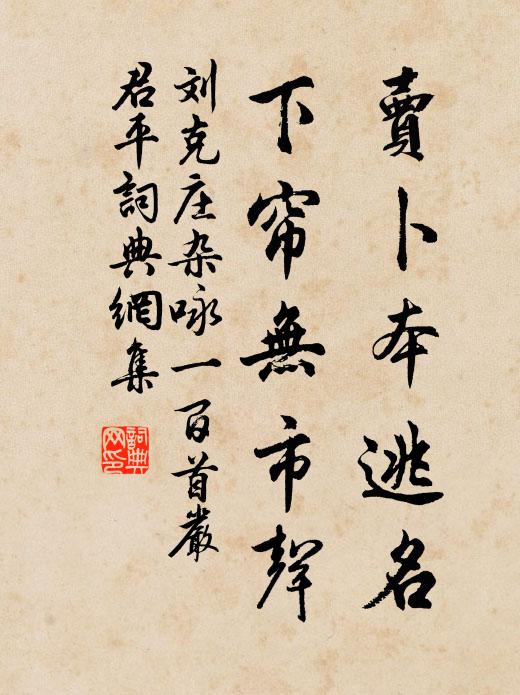 賣卜本逃名
下帘無市聲
刘克庄杂咏一百首嚴
君平詞典網集
詞典网印